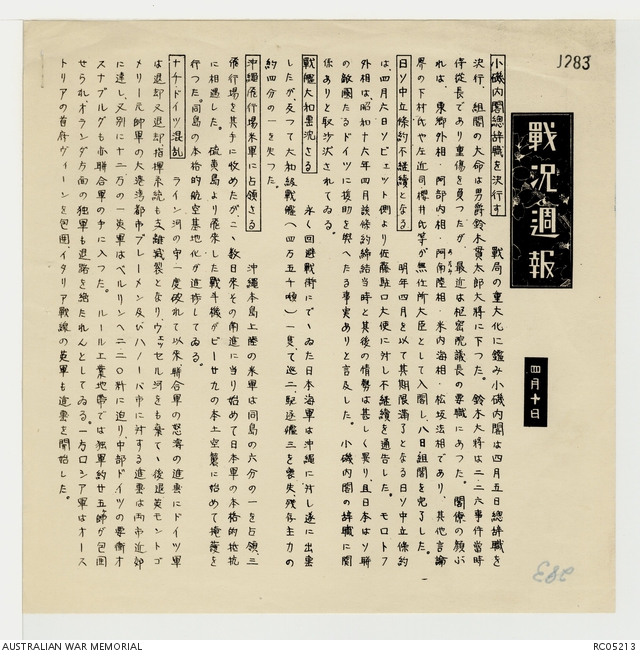 J283
戰況週報
四月十日
小磯内閣總辭職を決行す　戰局の重大化に鑑み小磯内閣は四月五日總辭職を
決行、組閣の大命は男爵鈴木貫太郎大將に下つた。鈴木大將は二二六事件當時
侍從長であり重傷を負つたが、最近は枢密院議長の要職にあつた。閣僚の顔ぶ
れは、東郷外相・阿部内相・阿南陸相・米内海相・松坂法相であり、其他言論
界の下村氏や左近司櫻井氏等が無任所大臣として入閣し、八日組閣を完了した。
日ソ中立條約不継續となる　明年四月を以て其期限滿了となる日ソ中立條約
は、四月六日ソビェット側より佐藤駐ロ大使に対し不継續を通告した。モロトフ
外相は、昭和十六年四月該條約締結当時と其後の情勢は甚しく異り、且日本はソ聯
の敵國たるドイツに援助を與へたる事実ありと言及した。小磯内閣の辭職に関
係ありと取沙汰されてゐる。
戰艦大和墨沈さる　永く回避戰術にでゝゐた日本海軍は沖縄に対し遂に出撃
したが反つて大和級戰艦（四万五千噸）一隻、巡二駆逐艦三を喪失残存主力の
約四分の一を失つた。
沖縄飛行場米軍に占領さる　沖縄本島上陸の米軍は同島の六分の一を占領、三
飛行場を其手に收めたが、こゝ数日來その南進に当り始めて日本軍の本格的抵抗
に相遇した。硫黄島より飛來した戰斗機がビー廿九の本土空襲に始めて掩護を
行つた。同島の本格的航空基地化が進捗してゐる。
ナチドイツ混乱　ライン河の守一度破れて以來、聯合軍の怒濤の進撃にドイツ軍
は退却又退却、指揮系統も支離滅裂となり、ウェッセル河をも棄てゝ後退、英モントゴ
メリー元帥軍の大港湾都市ブレーメン及びハノーバ市に対する進撃は両市近郊
に達し、又別に十二万の一英軍はベルリンへ二二〇粁に迫り、中部ドイツの要衝オ
スナブルグも亦聯合軍の手に入つた。ルール工業地帯では独軍約廿五師が包囲
せられオランダ方面の独軍も退路を絶たれんとしてゐる。一方ロシア軍はオース
トリアの首府ヴィーンを包囲イタリア戰線の英軍も進撃を開始した。
AUSTRALIAN WAR MEMORIAL
RC05213